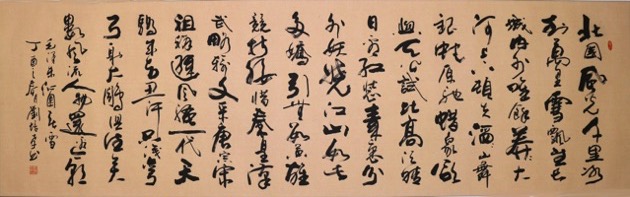 北国風光千里冰
封萬里雪飄望长
城内外唯餘莽々大
河上下顿失滔々山舞
银蛇原驰蜡象欲
与天公試比高须晴
日看红装素裹分
外妖娆江山如此
多嬌引無數英雄
競折腰惜秦皇漢
武略输文采唐宗宋
祖稍遜風骚一代天
骄成吉思汗只識弯
弓射大雕俱往矣
數風流人物還看今朝
毛澤東沁園春雪
丁酉之春月劉